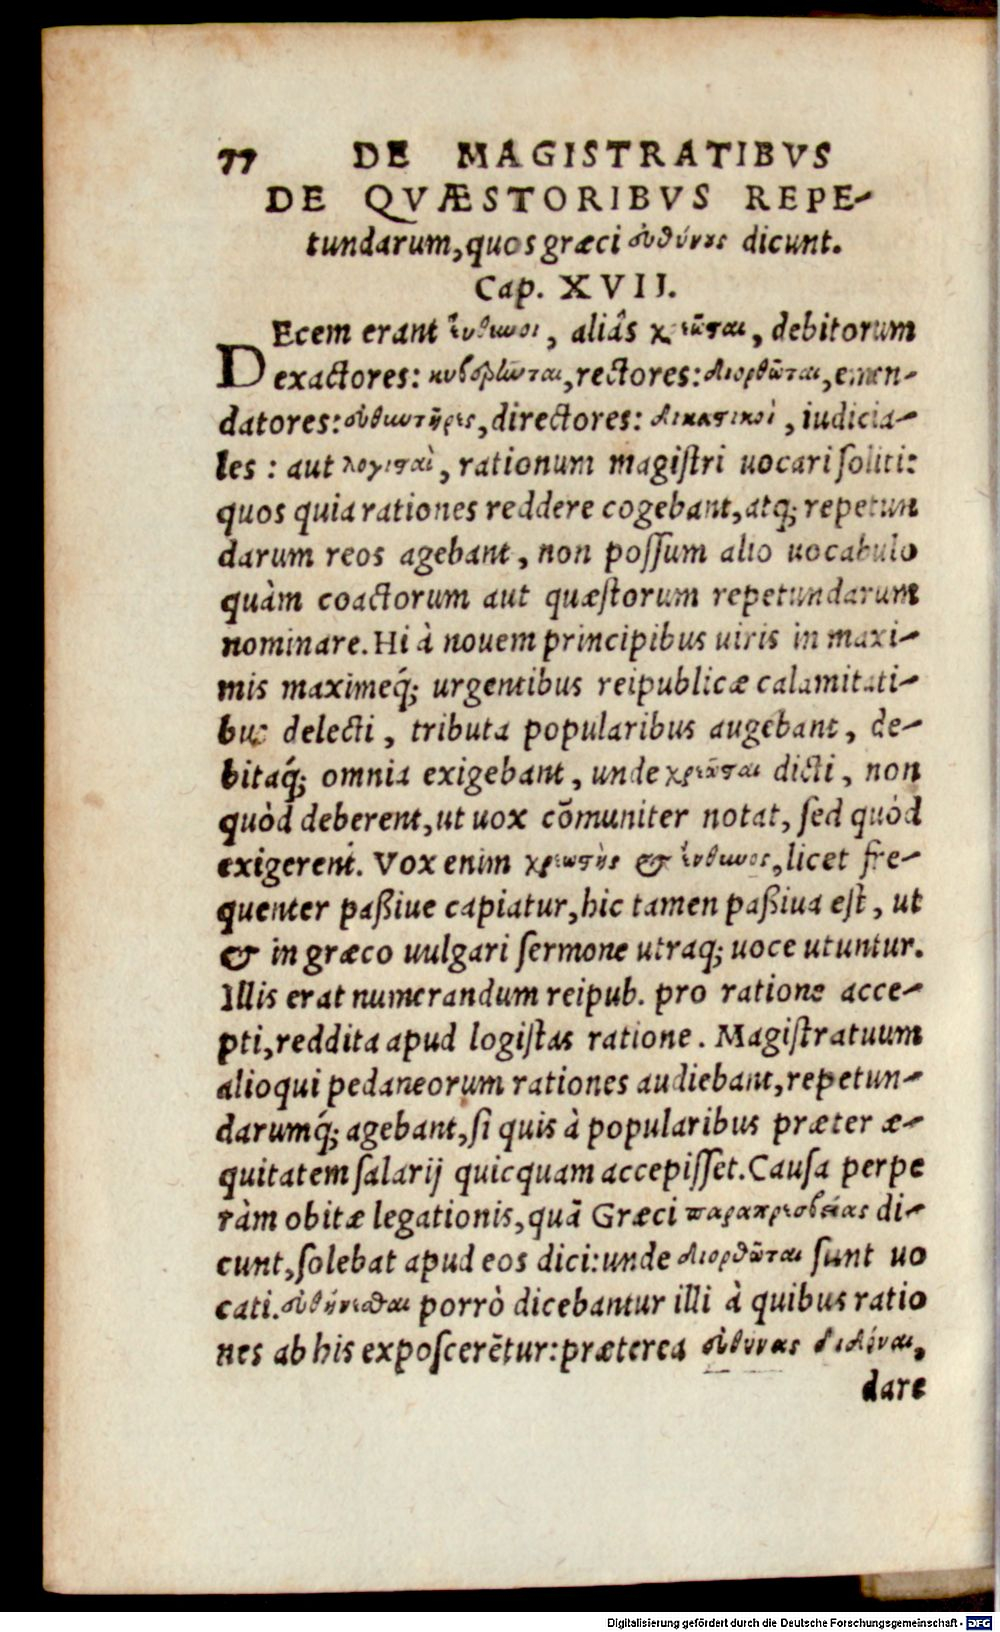 77 DE MAGISTRATIBVS
DE QVÆSTORIBVS REPE-
tundarum, quos græci εὐθύνους dicunt.
Cap. XVII.
DEcem erant εὔθυνοι, aliâs χρεῶσαι, debitorum
exactores: κυβερνῶνται, rectores: διορθῶται, emen-
datores: εὐθυντῆρες, directores: δικαστικοὶ, iudicia-
les: aut λογισαὶ, rationum magiſtri uocari ſoliti:
quos quia rationes reddere cogebant, atq; repetun
darum reos agebant, non poſſum alio uocabulo
quàm coactorum aut quæſtorum repetundarum
nominare. Hi à nouem principibus uiris in maxi-
mis maximeq́; urgentibus reipublicæ calamitati-
bus delecti, tributa popularibus augebant, de-
bitaq́; omnia exigebant, unde χρεῶσαι dicti, non
quòd deberent, ut uox cōmuniter notat, ſed quòd
exigerent. Vox enim χρεωσὴς & εὔθυνος, licet fre-
quenter paßiue capiatur, hic tamen paßiua eſt, ut
& in græco uulgari ſermone utraq; uoce utuntur.
Illis erat numerandum reipub. pro ratione acce-
pti, reddita apud logiſtas ratione. Magiſtratuum
alioqui pedaneorum rationes audiebant, repetun-
darumq́; agebant, ſi quis à popularibus præter æ-
quitatem ſalarij quicquam accepiſſet. Cauſa perpe
ràm obitæ legationis, quā Græci παραπρεσβείας di-
cunt, ſolebat apud eos dici: unde διορθῶται ſunt uo
cati. εὐθύνεσθαι porrò dicebantur illi à quibus ratio
nes ab his expoſcerētur: præterea εὐθύνας διδόναι,
dare
Digitalisierung gefördert durch die Deutsche Forschungsgemeinschaft - DFG